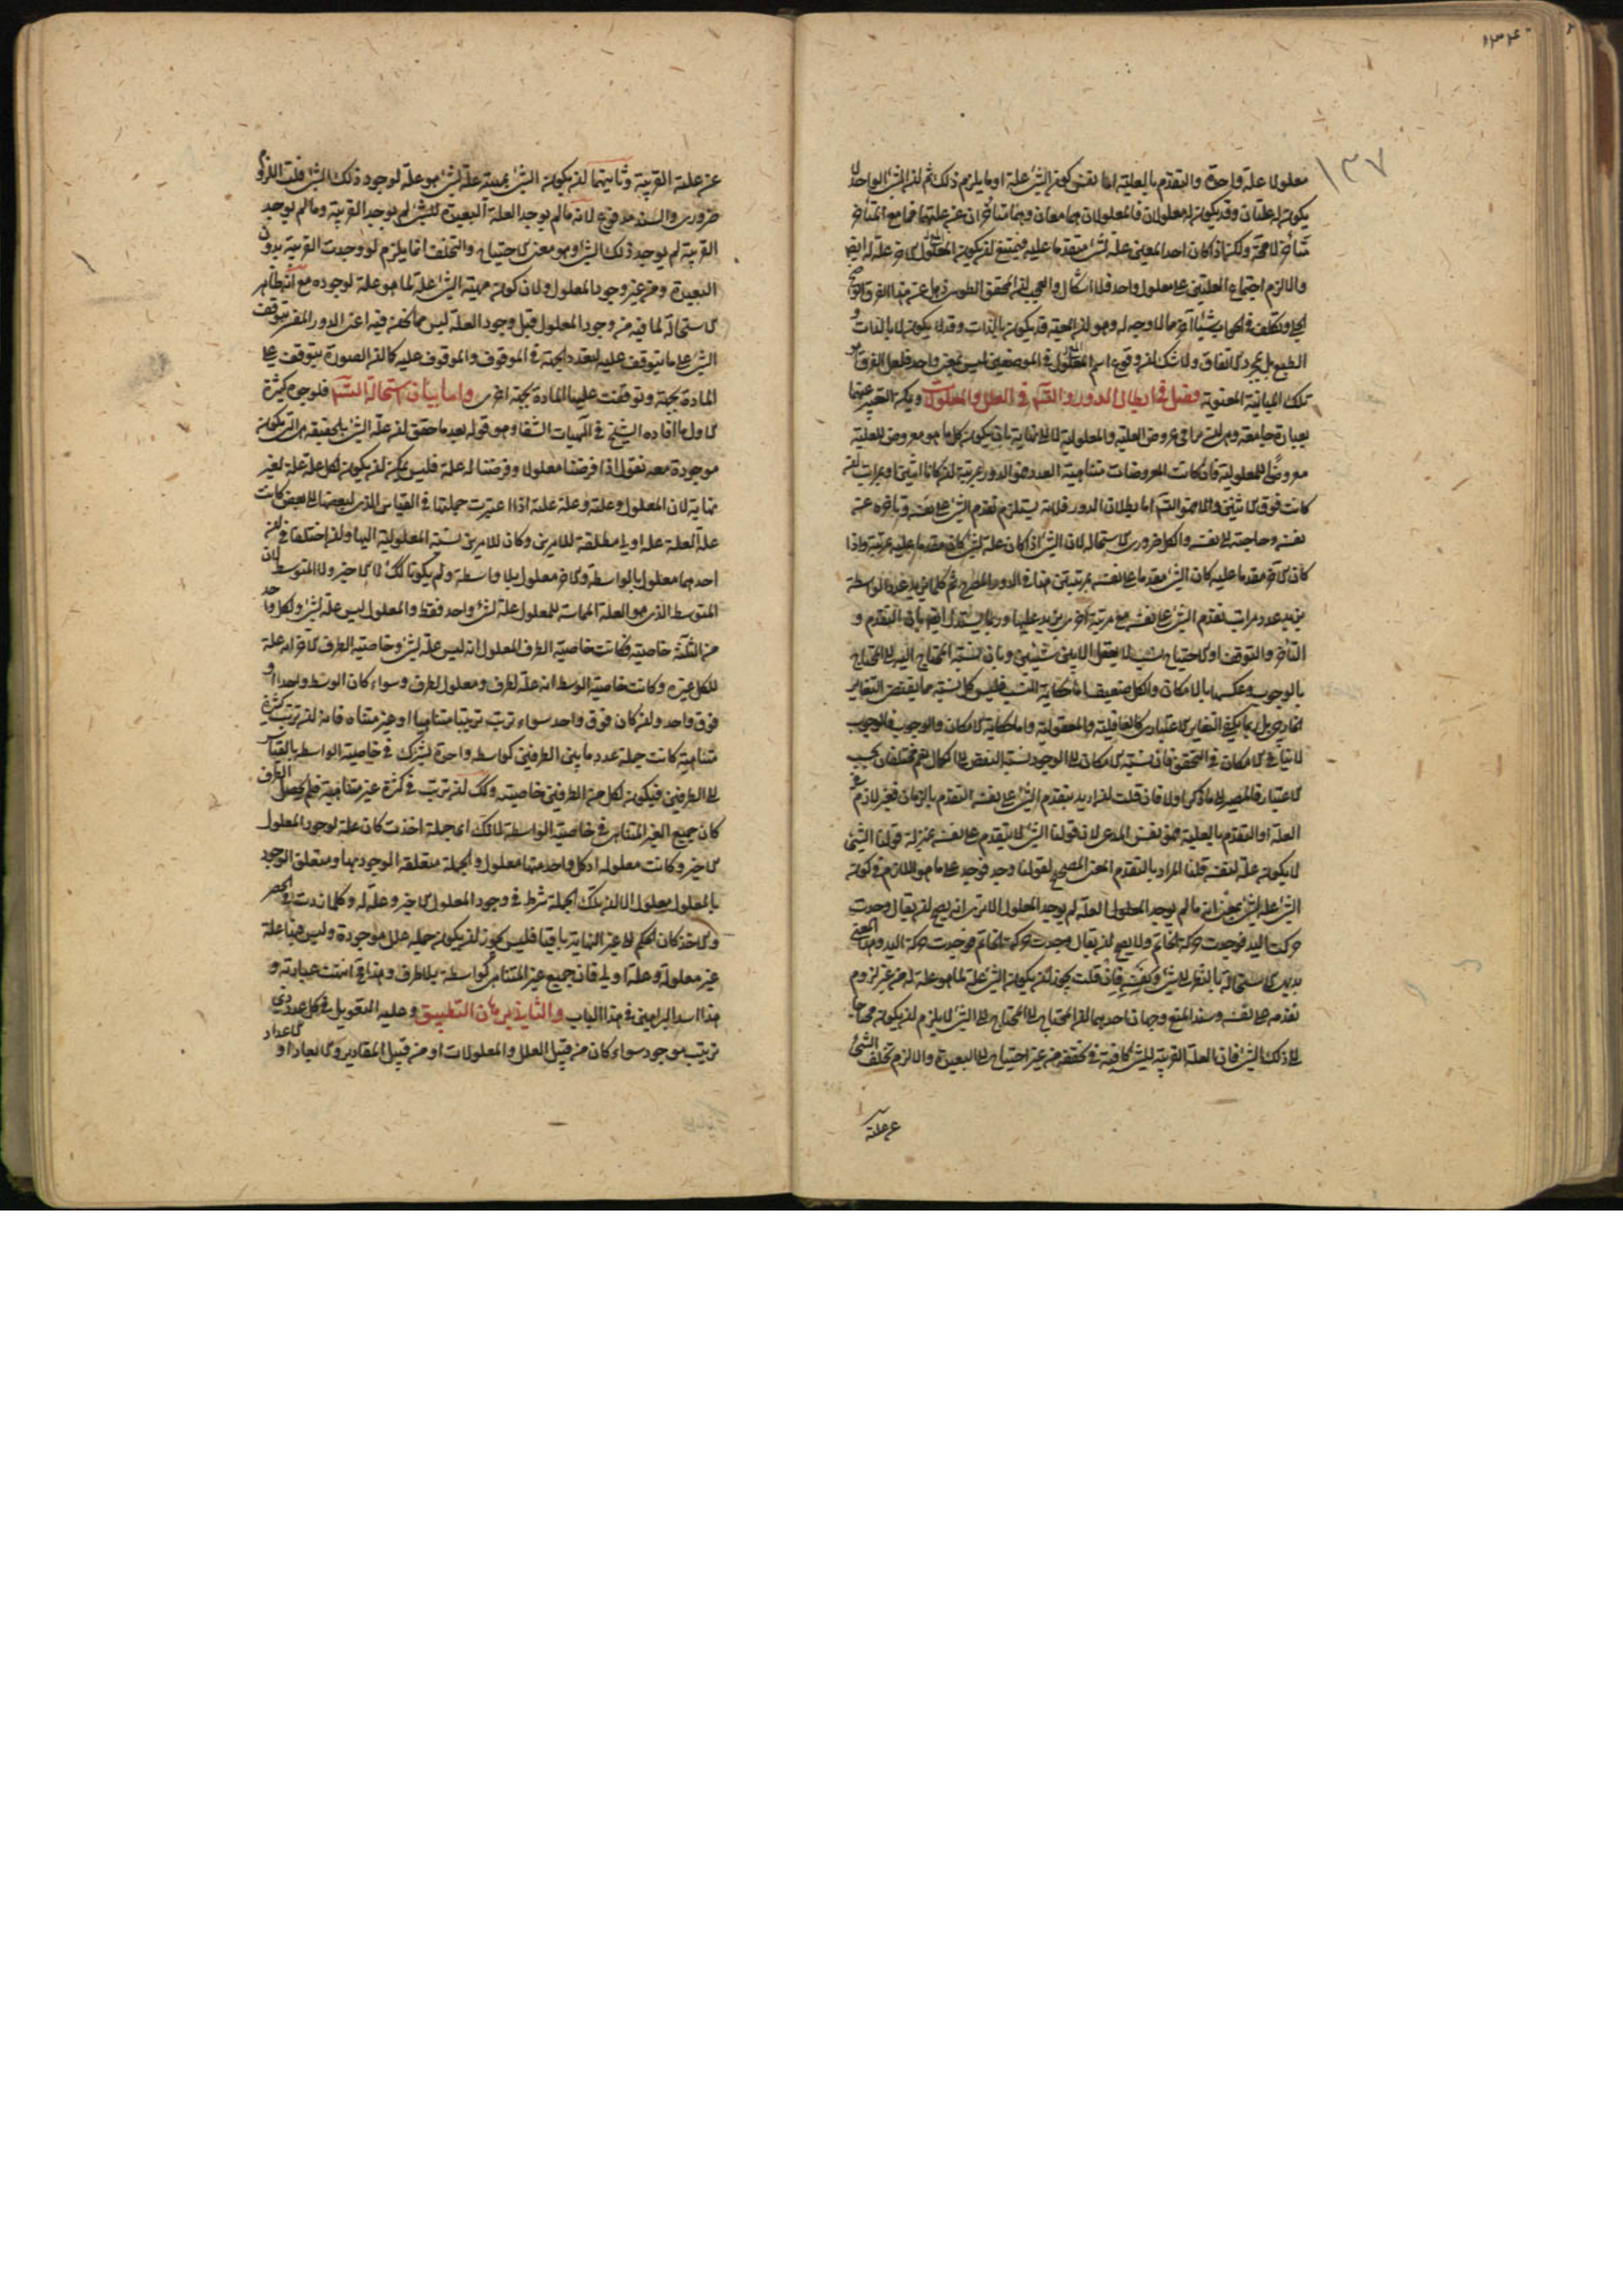 ١٣٤
١٣٧
معلولا علة واحدة والتقدم بالعلية انما نعنى كون الشئ علة او ما يلزم ذلك ثم لن الشئ الواحد لا
يكون له علتان وقد يكون له معلولان فالمعلولان هما معان وهما متأخران عن علتهما فما مع المتأخر
متأخر لا محة ولكن اذا كان احد المعين علة لشئ متقدما عليه فيمتنع لن يكون المعلول الاخر علة له ايضا
والا لزم اجتماع العلتين على معلول واحد فلا اشكال والعجب لن المحقق الطوسى ذهل عن هذا الفرق الواضح
الجلى وتكلف فى الجواب شيئا اخر مما لا وجه له وهو لن المعية قد يكون بالذات وقد لا يكون لا بالذات و
الطبع بل بمجرد الاتفاق ولا شك لن وقوع اسم فى الموضعين ليس بمعنى واحد فلعل الفرق هو
تلك المباينة المعنوية فصل فى ابطال الدور والتسـ فى العلل والمعلولات ويمكن التعبير عنهما
بعبارة جامعة وهى لن يتراقى عروض العلية والمعلولية لا الى نهاية بان يكون كل ما هو معروض للعلية
معروضا للمعلولية فان كانت المعروضات متناهية العدد فهو الدور بمرتبة لن كانا اثنين او بمراتب لن
كانت فوق الاثنين والا فهو التسـ اما بطلان الدور فلانه يستلزم تقدم الشئ على نفسه وتأخره عن
نفسه وحاجته الى نفسه والكل ضرورى الاستحالة لان الشئ اذا كان علة لشئ كان مقدما عليه بمرتبة واذا
كان الاخر مقدما عليه كان الشئ مقدما على نفسه بمرتبتين هذا فى الدور المصرح ثم كلما يزيد عدد الواسطة
يزيد عدد مراتب تقدم الشئ على نفسه مع مرتبة اخرى يزيد عليها وربما يستدل ايضا بان التقدم و
التاخر والتوقف او الاحتياج نسب لا يعقل الا بين شيئين وبان نسبة المحتاج اليه الى المحتاج
بالوجوب وعكسها بالامكان والكل ضعيف اما حكاية النسب فليس كل نسبة مما يقتضى التغاير
الخارجى بل ربما يكفى التغاير الاعتبارى كالعاقلية والمعقولية واما حكاية الامكان والوجوب فالوجوب
لا ينافى الامكان فى التحقق فان نسبة الامكان الى الوجود نسبة النقص الى الكمال نعم مختلفان بحسب
الاعتبار فالمصير الى ما ذكر اولا فان قلت لن اريد بتقدم الشئ على نفسه التقدم بالزمان فغير لازم فى
العلة او التقدم بالعلية فهو نفس المدعى لان قولنا الشئ لا يتقدم على نفسه بمنزلة قولنا الشئ
لا يكون علة لنفسه قلنا المراد بالتقدم المعنى المصحح لقولنا وجد فوجد على ما هو اللازم فى كون
الشئ علة لشئ بمعنى انه ما لم يوجد العلة لم يوجد المعلول الا ترى انه يصح لن يقال وجدت
حركت اليد فوجدت حركة الخاتم ولا يصح لن يقال وجدت حركة الخاتم فوجدت حركة اليد وهذا المعنى
بديهى الاستحالة بالنظر الى شئ ونفسه فان قلت يجوز لن يكون الشئ علة لما هو علة له من غير لزوم
تقدمه على نفسه وسند المنع وجهان احدهما لن المحتاج الى المحتاج الى الشئ لا يلزم لن يكون محتاجا
الى ذلك الشئ فان العلة القريبة للشئ كافية فى تحققه من غير احتياج الى البعيدة والا لزم تخلف الشئ
عن علته
عن علته القريبة وثانيهما لن يكون الشئ بمهيته علة لشئ هو علة لوجود ذلك الشئ قلت اللزوم
ضرورى والسند مدفوع لانه ما لم يوجد العلة البعيدة للشئ لم يوجد القريبة وما لم يوجد
القريبة لم يوجد ذلك الشئ وهو معنى الاحتياج والتخلف انما يلزم لو وجدت القريبة بدون
البعيدة ومن غير وجود المعلول ولان كون مهية الشئ علة لما هو علة لوجوده مع انه ظاهر
الاستحالة لما فيه من وجود المعلول قبل وجود العلة ليس مما نحن فيه اعنى الدور المفسر بتوقف
الشئ على ما يتوقف عليه لتعدد الجهة فى الموقوف والموقوف عليه كما لن الصورة يتوقف على
المادة بجهة وتوقفت عليها المادة بجهة اخرى واما بيان استحالة التسـ فلوجوه كثيرة
الاول ما افاده الشيخ فى الهيات الشفا وهو قوله بعد ما حقق لن علة الشئ بالحقيقة هى التى يكون
موجودة معه نقول اذا فرضنا معلولا وفرضنا له علة فليس يمكن لن يكون لكل علة علة لغير
نهاية لان المعلول وعلته وعلة علته اذا اعتبرت جملتها فى القياس الذى لبعضها الى بعض كانت
علة العلة علة اولى مطلقة للامرين وكان للامرين نسبة المعلولية اليها ولن اختلفا فى لن
احدهما معلول بالواسطة والاخر معلول بلا واسطة ولم يكونا كلك لا الاخير ولا المتوسط لان
المتوسط الذى هو العلة المماسة للمعلول علة لشئ واحد فقط والمعلول ليس علة لشئ ولكل واحد
من الثلثة خاصية فكانت خاصية الطرف المعلول انه ليس علة لشئ وخاصية الطرف الاخر انه علة
للكل غيره وكانت خاصية الوسط انه علة لطرف ومعلول لطرف وسواء كان الوسط واحدا او
فوق واحد ولن كان فوق واحد سواء ترتب ترتيبا متناهيا او غير متناه فانه لن ترتب كثرة
متناهية كانت جملة عدد ما بين الطرفين كواسطه واحدة يشترك فى خاصية الواسطه بالقياس
الى الطرفين فيكون لكل من الطرفين خاصيته وكلك لن ترتب فى كثرة غير متناهية فلم يحصل الطرف
كان جميع الغير المتناهى فى خاصية الواسطة لانك اى جملة اخذت كان علة لوجود المعلول
الاخير وكانت معلولة اذ كل واحد منها معلول والجملة متعلقة الوجود بها ومتعلق الوجود
بالمعلول معلول الا لن تلك الجملة شرط فى وجود المعلول الاخير وعلة له وكلما زدت فى الحصر
والاخذ كان الحكم الى غير النهاية باقيا فليس يجوز لن يكون جملة علل موجودة وليس فيها علة
غير معلولة وعلة اولى فان جميع غير المتناهى كواسطة بلا طرف وهذا مح انتهت عبارته و
هذا اسد البراهين فى هذا الباب والثانى برهان التطبيق وعليه التعويل فى كل عدد ذى
ترتيب موجود سواء كان من قبيل العلل والمعلولات او من قبيل المقادير والابعاد او الاعداد